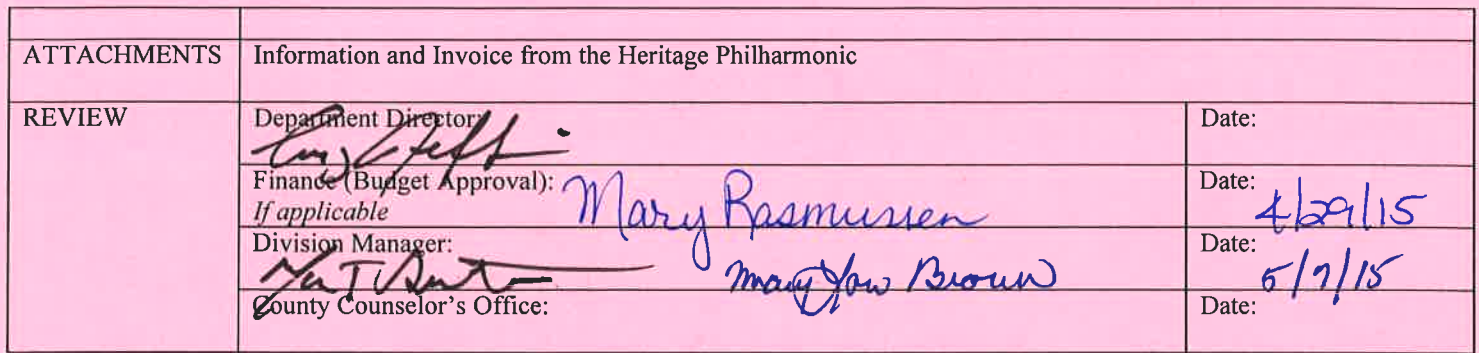 ATTACHMENTS Information and Invoice from the Heritage Philharmonic
REVIEW Department Director: Date:
Finance (Budget Approval): Mary Rasmussen Date: 4/29/15
If applicable
Division Manager: Mary Brown Date: 5/7/15
County Counselor's Office: Date: